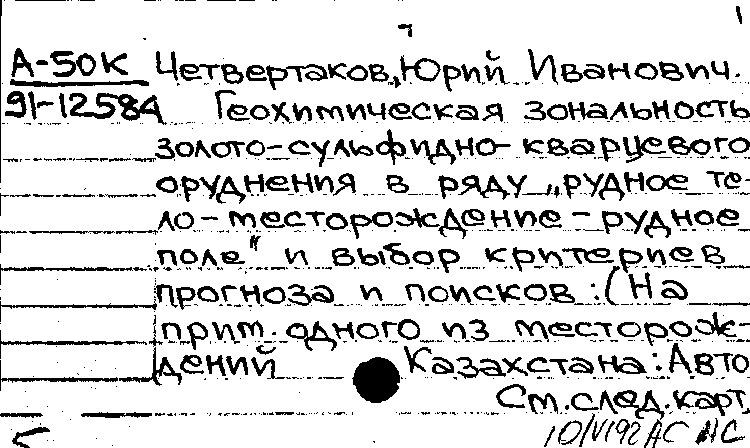 1
А-50К Четвертаков, Юрий Иванович.
91-12584 Геохимическая зональность
золото-сульфидно-кварцевого
оруднения в ряду „рудное те-
ло-месторождение-рудное
поле" и выбор критериев
прогноза и поисков: (На
прим. одного из месторож-
дений Казахстана: Авто
См. след. карт.
10/V192 АС НС